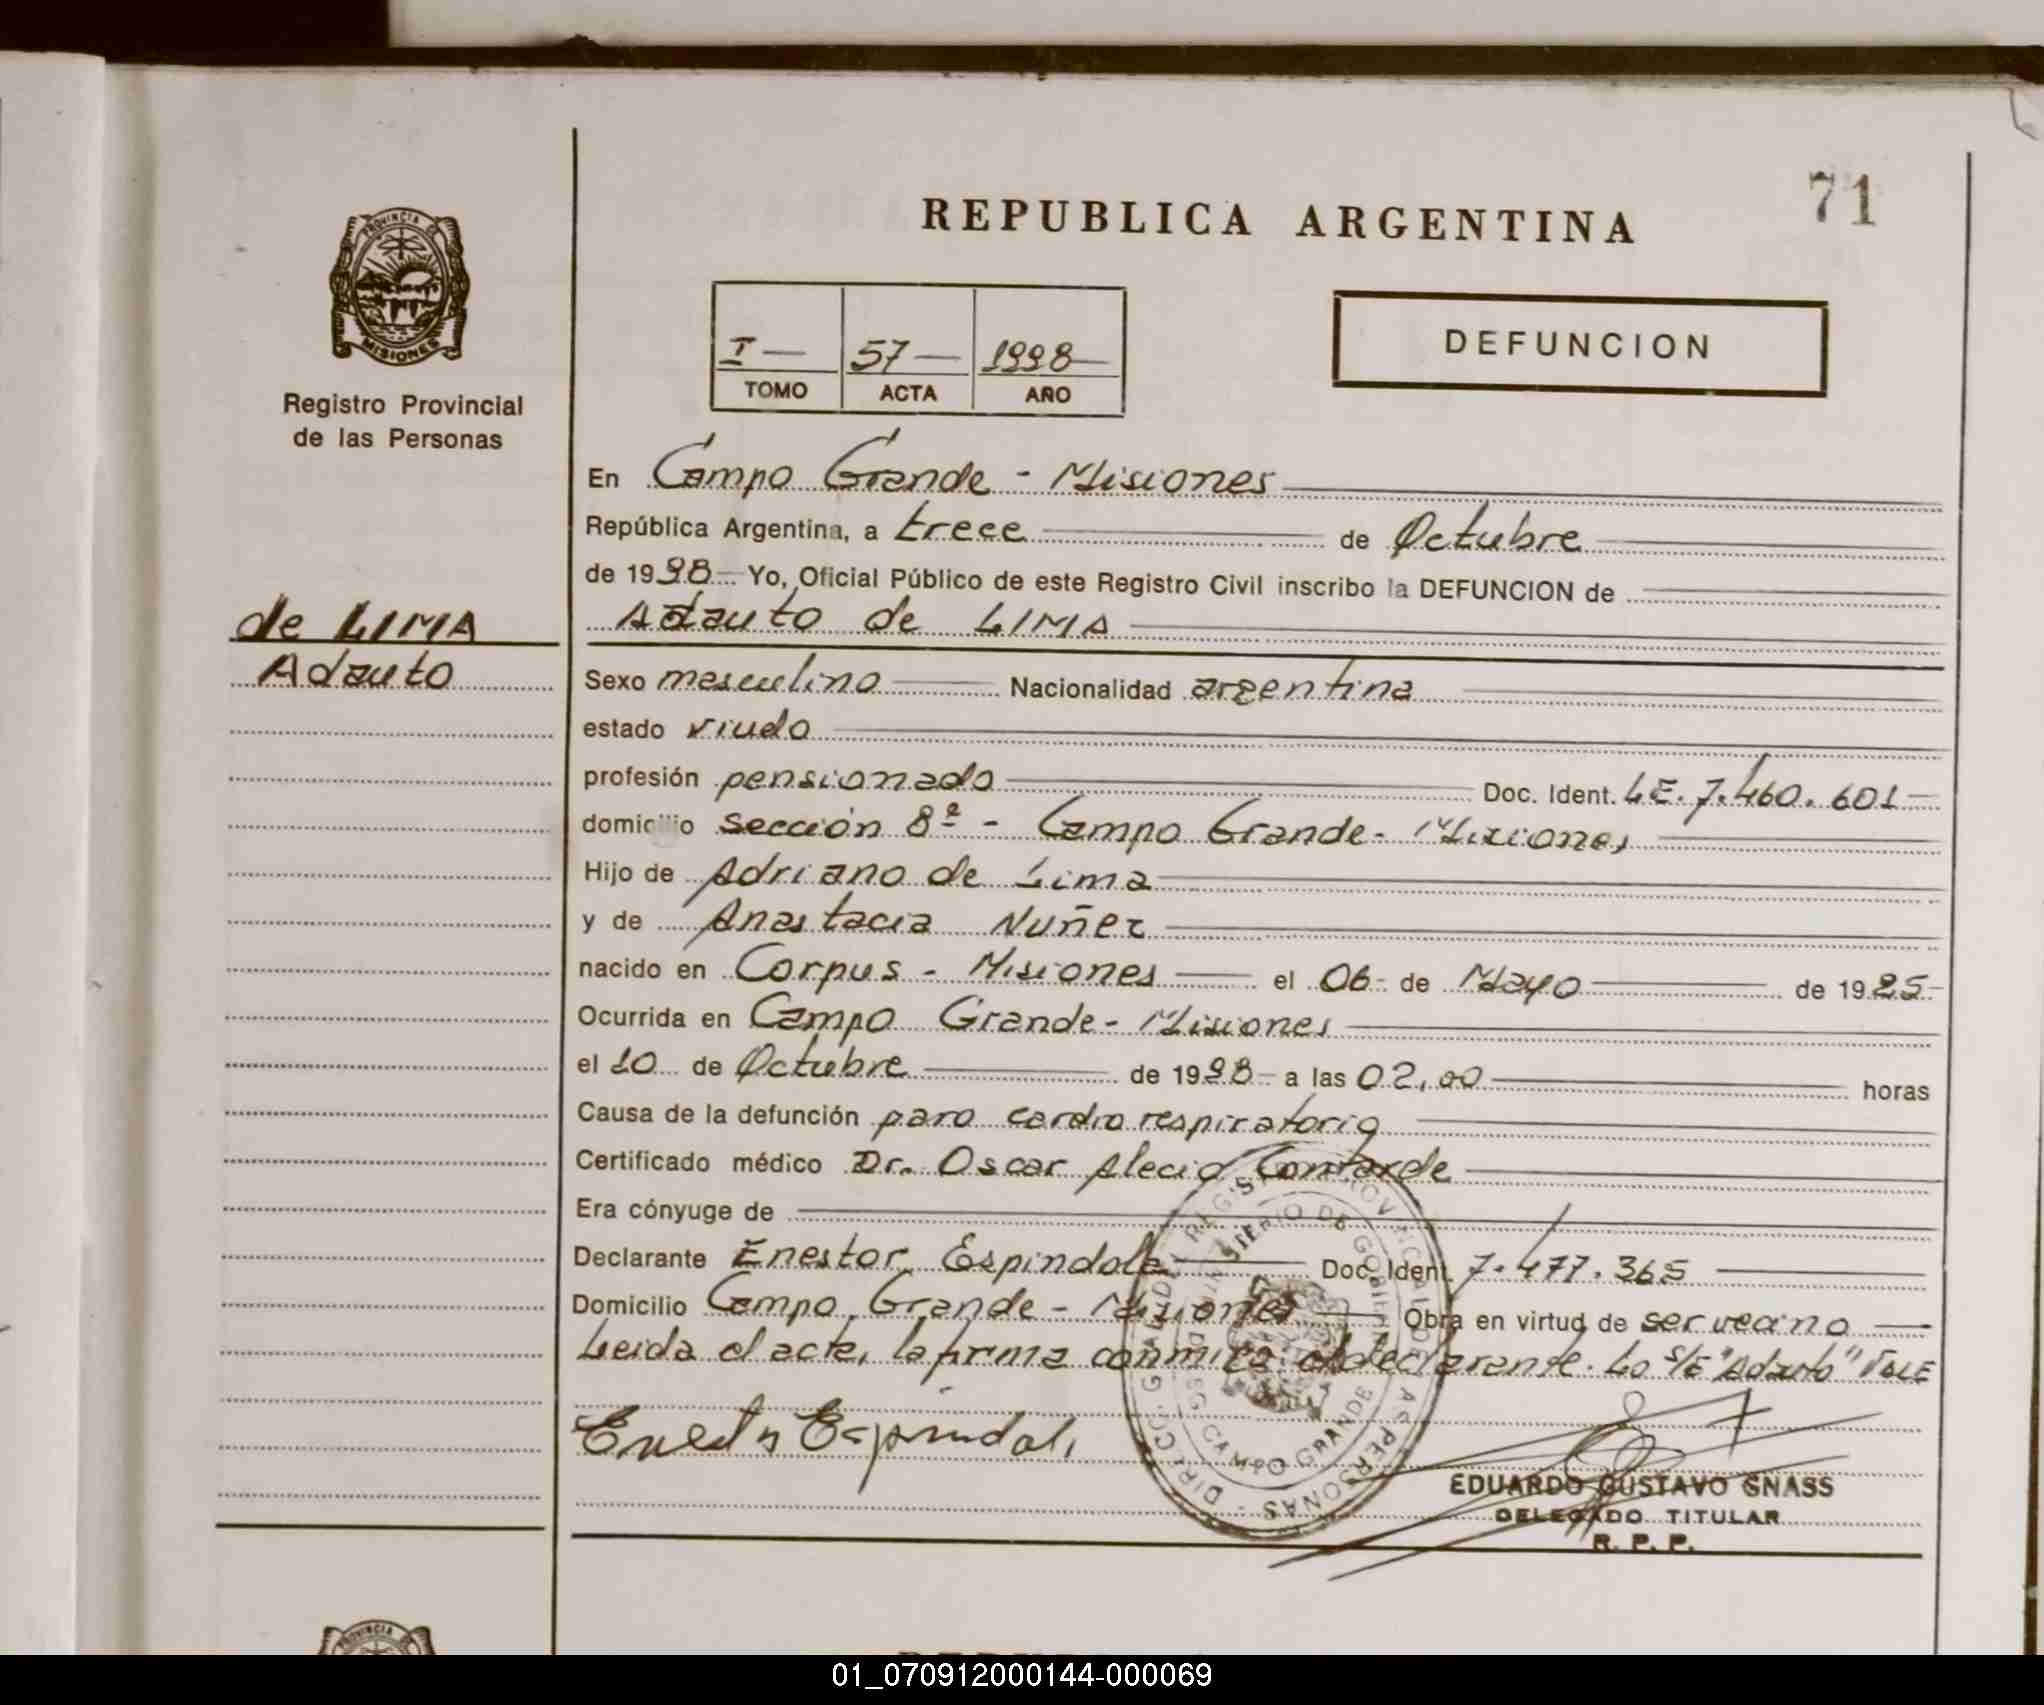 71
REPUBLICA ARGENTINA
PROVINCIA DE
MISIONES
Registro Provincial
de las Personas
I — 57 — 1998 —
TOMO ACTA AÑO
DEFUNCION
En Campo Grande - Misiones
República Argentina, a trece de Octubre
de 1998 Yo, Oficial Público de este Registro Civil inscribo la DEFUNCION de
de LIMA
Adauto
Adauto de LIMA
Sexo masculino Nacionalidad argentina
estado viudo
profesión pensionado Doc. Ident. LE. 7.460.601
domicilio Sección 8ª - Campo Grande - Misiones
Hijo de Adriano de Lima
y de Anastacia Nuñez
nacido en Corpus - Misiones el 06 de Mayo de 1925
Ocurrida en Campo Grande - Misiones
el 10 de Octubre de 1998 a las 02,00 horas
Causa de la defunción paro cardio respiratorio
Certificado médico Dr. Oscar Alecio
Era cónyuge de
Declarante Enestor Espindola Doc. Ident. 7.477.365
Domicilio Campo Grande - Misiones Obra en virtud de ser vecino
Leida el acta, la firma conmigo el declarante. Lo S/E "Adauto" VALE
Enestor Espindola
CAMPO GRANDE
EDUARDO GUSTAVO GNASS
DELEGADO TITULAR
R. P. P.
PROVINCIA
01_070912000144-000069